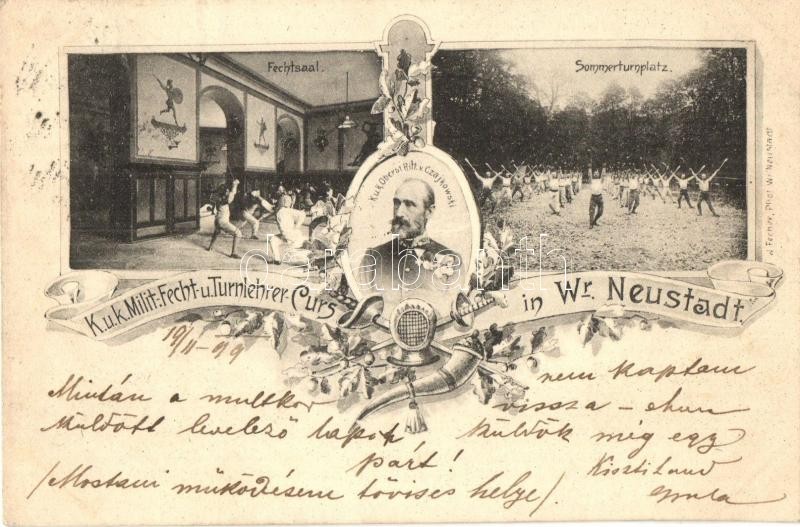 Fechtsaal.
Sommerturnplatz.
K.u.k. Oberst Ritt. v. Czajkowski
J. Fechner, Phot. Wr. Neustadt
K.u.k. Milit.-Fecht-u.Turnlehrer-Curs
in Wr. Neustadt.
darabanth
.com
19/II-99
Mintán a multkor
küldött levelező lapok
párt!
nem kaptam
vissza – ehun
küldök még egy
/Mostani működésem tövises helye/.
Gyula